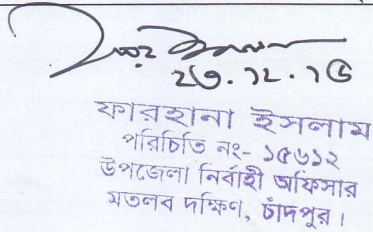 ২৩.১২.১৫
ফারহানা ইসলাম
পরিচিতি নং- ১৫৬১২
উপজেলা নির্বাহী অফিসার
মতলব দক্ষিণ, চাঁদপুর।